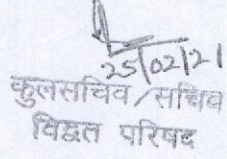 25/02/21
कुलसचिव/सचिव
विद्वत परिषद